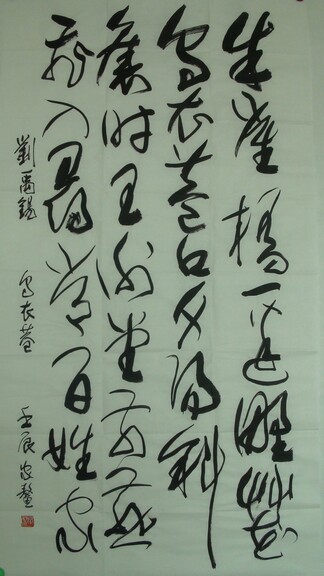 朱雀橋邊野草花
烏衣巷口夕陽斜
舊時王謝堂前燕
飛入尋常百姓家
劉禹錫 烏衣巷 壬辰家鰲